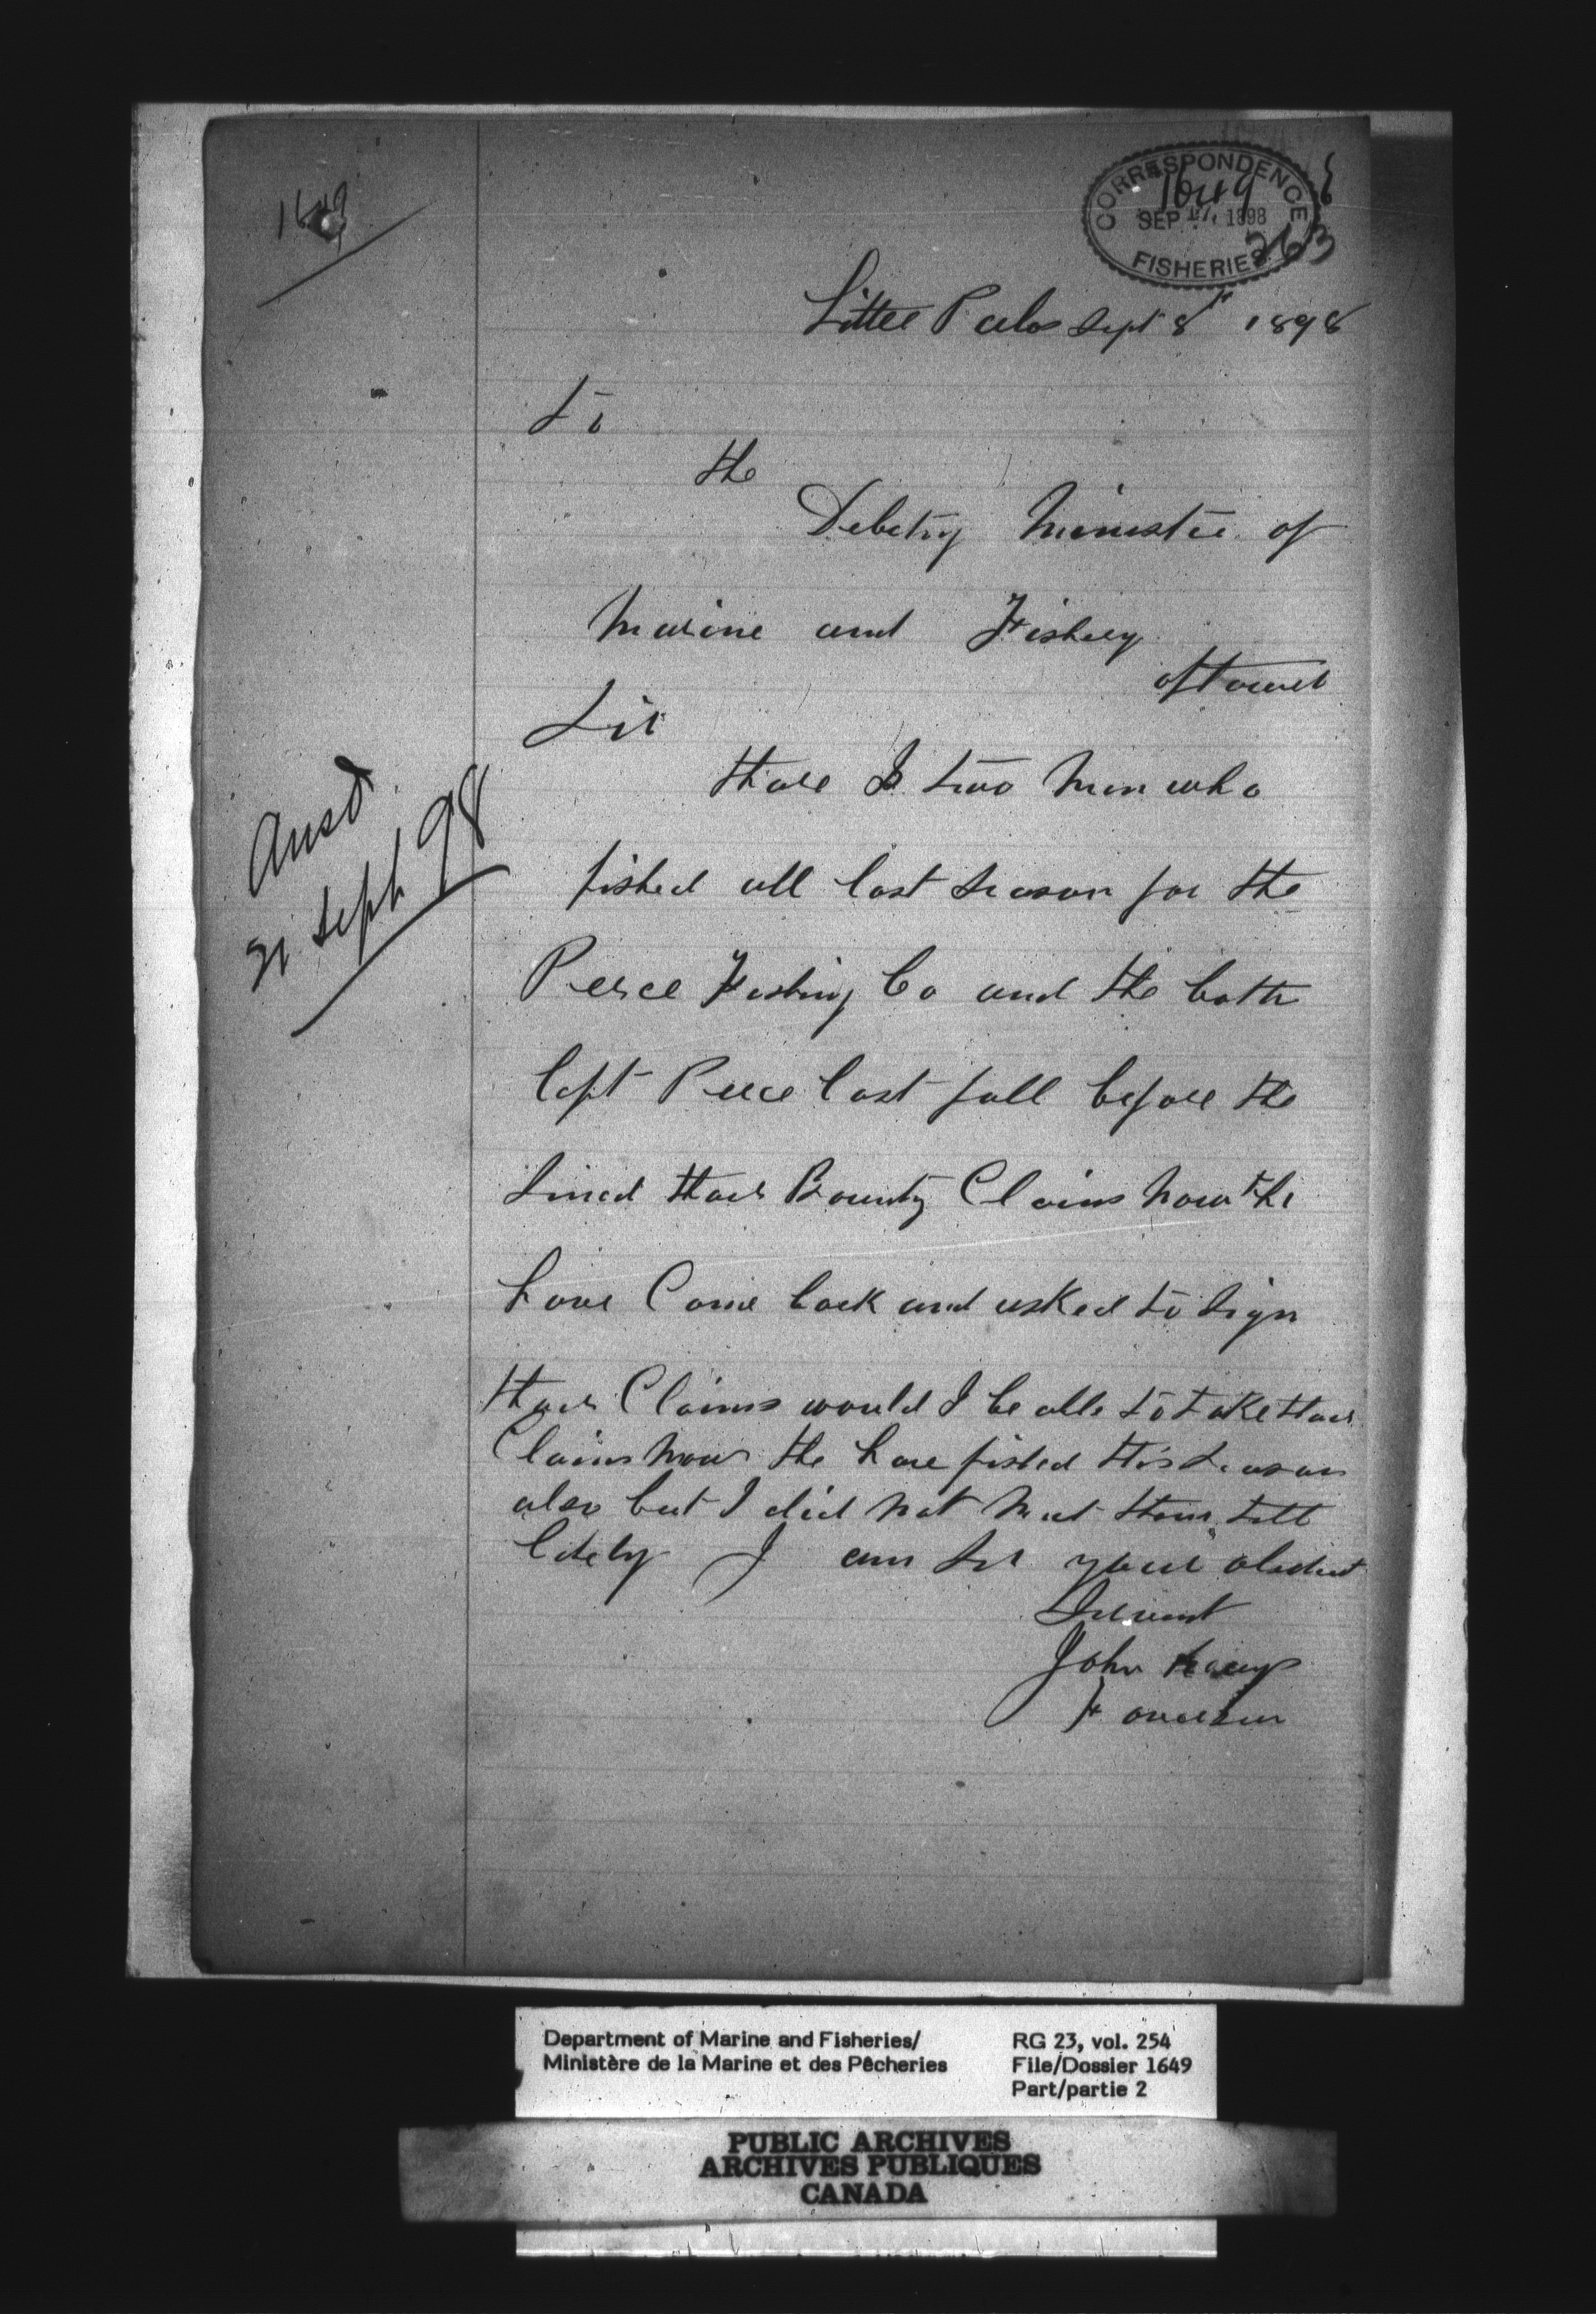 1649
CORRESPONDENCE
1649
SEP 17 1898
263
FISHERIES
Littel Pabos Sept 8th 1898
To
the
Debety Minister of
Marine and Fishery
ottawa
Sir
thare Is two Men who
fished all last Season for the
Perce Fishing Co and the both
left Perce last fall before the
Sined thair Bounty Claims Now the
have Come back and asked to Sign
thair Claims would I be able to take thair
Claims Now the have fished this Season
also but I did Not Meet them till
lately I am Sir your obedient
Servent
John
Ansd.
21 Sept 98
Department of Marine and Fisheries/
Ministère de la Marine et des Pêcheries
RG 23, vol. 254
File/Dossier 1649
Part/partie 2
PUBLIC ARCHIVES
ARCHIVES PUBLIQUES
CANADA